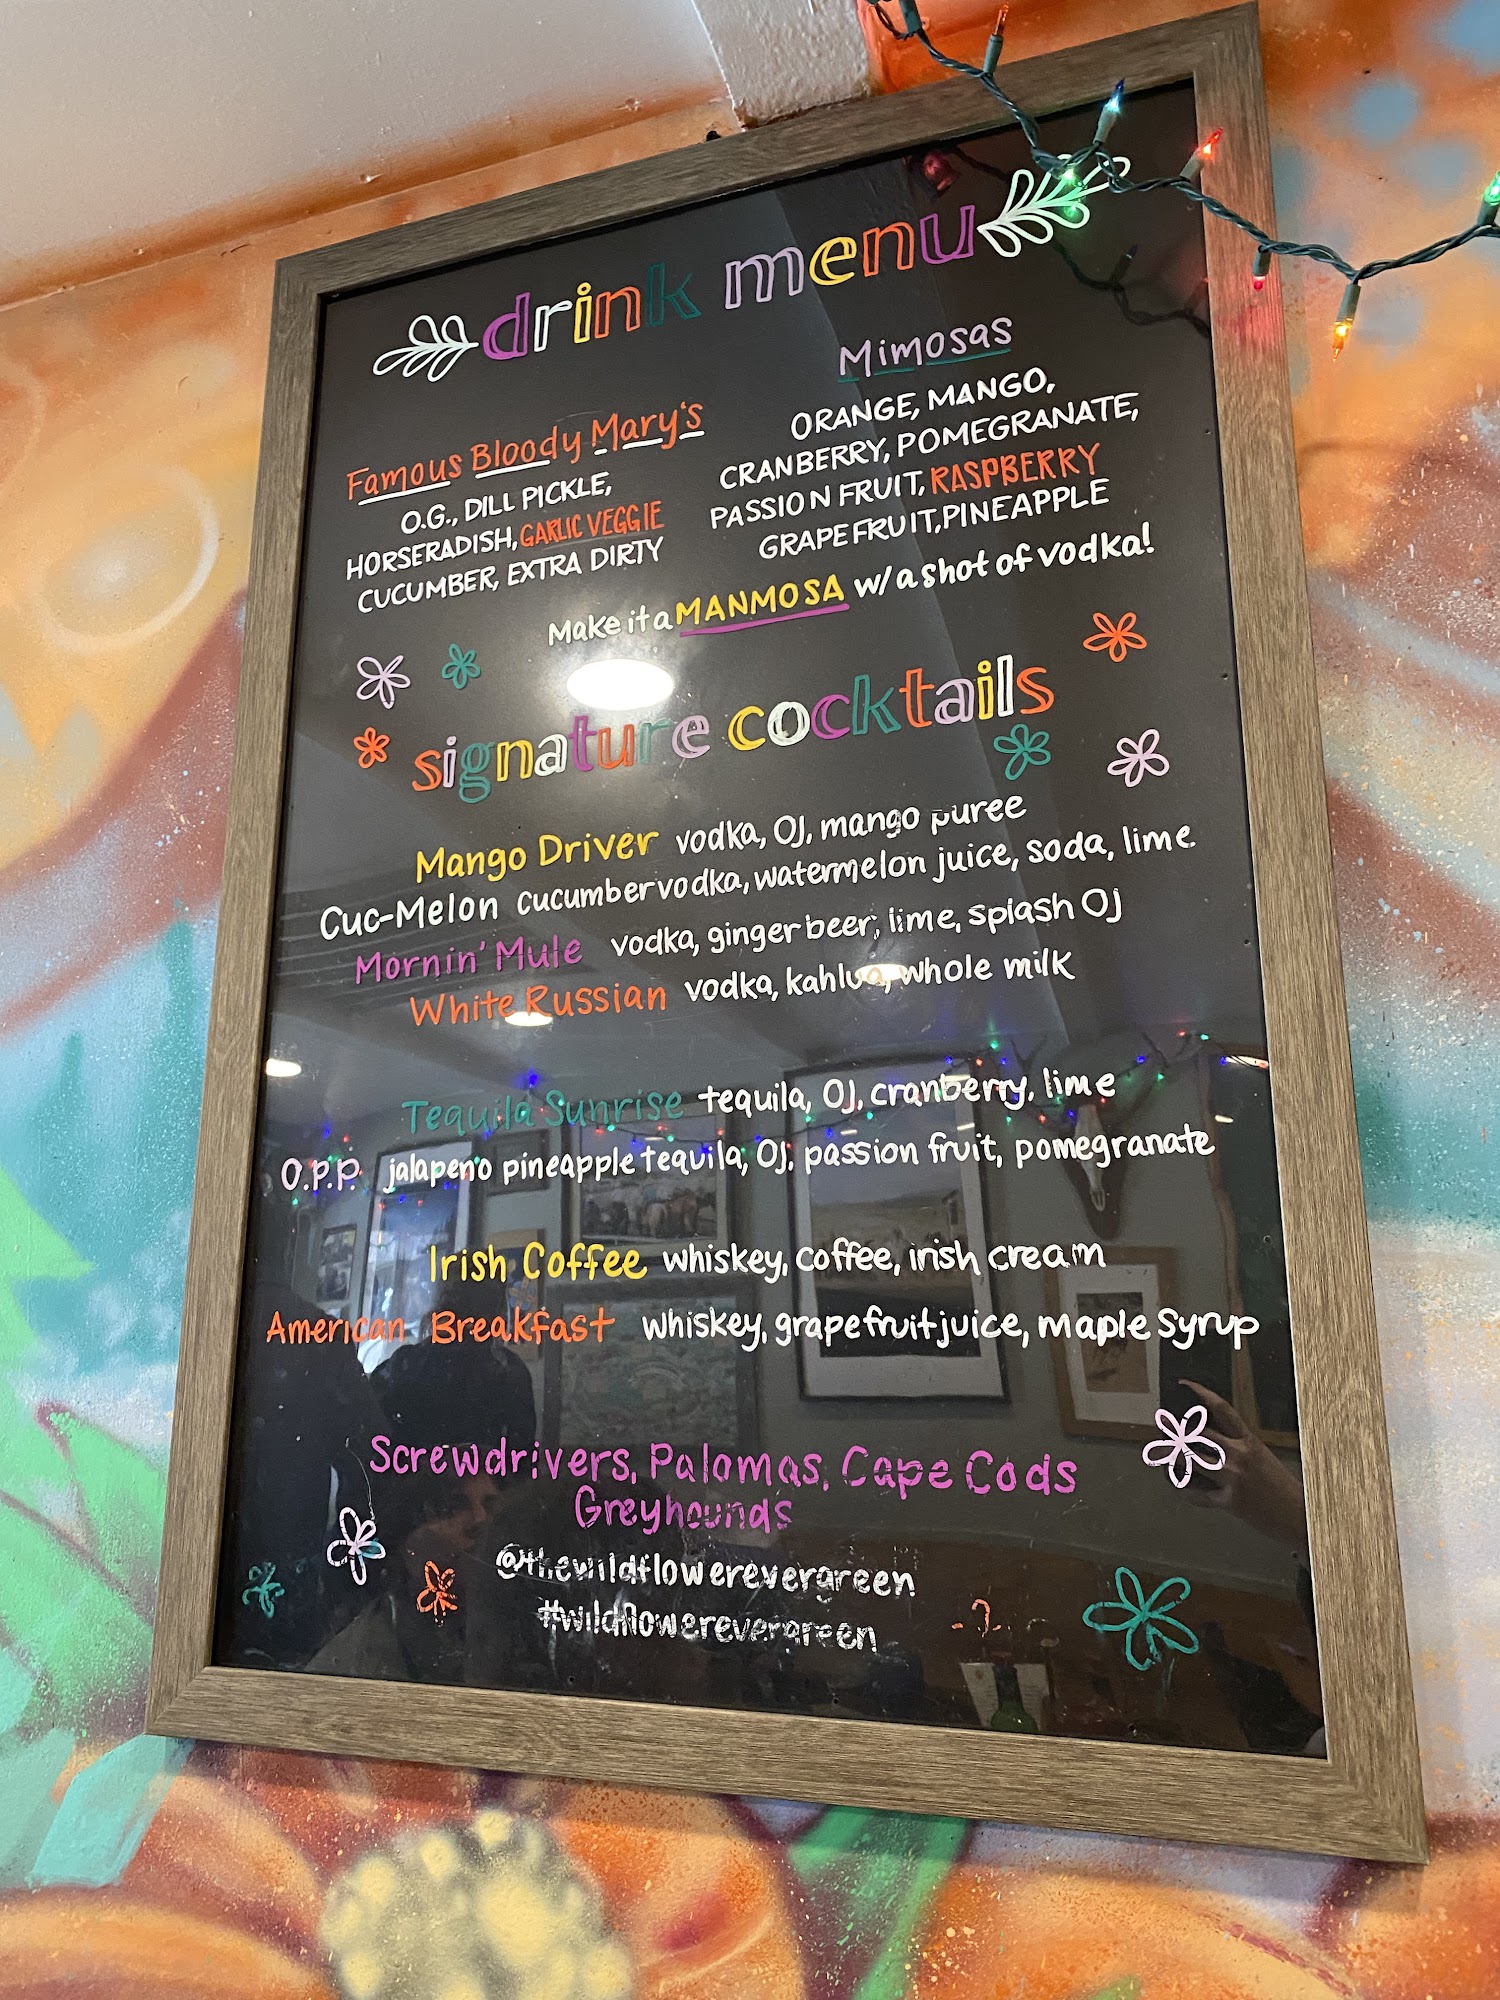 drink menu
Famous Bloody Mary's
O.G., DILL PICKLE,
HORSERADISH, GARLIC VEGGIE
CUCUMBER, EXTRA DIRTY
Mimosas
ORANGE, MANGO,
CRANBERRY, POMEGRANATE,
PASSION FRUIT, RASPBERRY
GRAPEFRUIT, PINEAPPLE
Make it a MANMOSA w/ a shot of vodka!
signature cocktails
Mango Driver vodka, OJ, mango puree
Cuc-Melon cucumber vodka, watermelon juice, soda, lime
Mornin' Mule vodka, ginger beer, lime, splash OJ
White Russian vodka, kahlua, whole milk
Tequila Sunrise tequila, OJ, cranberry, lime
O.P.P. jalapeno pineapple tequila, OJ, passion fruit, pomegranate
Irish Coffee whiskey, coffee, irish cream
American Breakfast whiskey, grapefruit juice, maple syrup
Screwdrivers, Palomas, Cape Cods
Greyhounds
@thewildflowerevergreen
#wildflowerevergreen